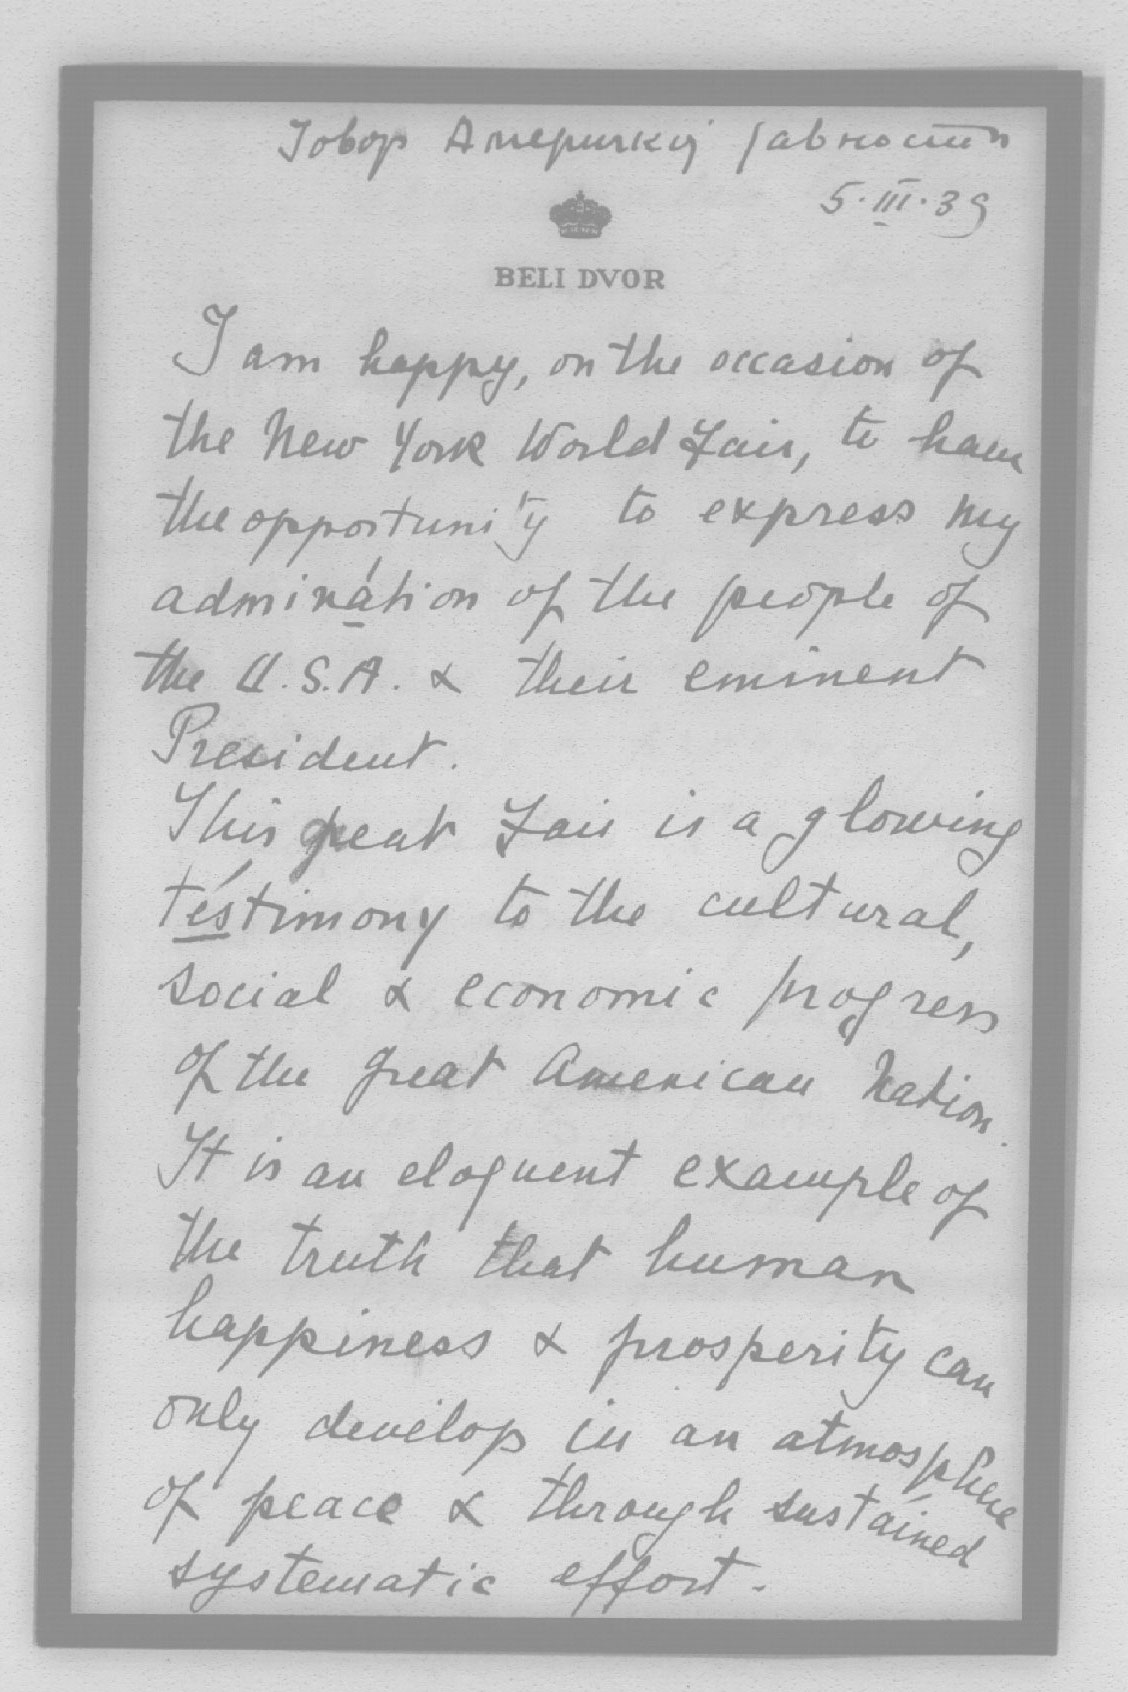 Говор Америчкој јавности
5.III.39
BELI DVOR
I am happy, on the occasion of
the New York World Fair, to have
the opportunity to express my
admirátion of the people of
the U.S.A. & their eminent
President.
This great Fair is a glowing
téstimony to the cultural,
social & economic progress
of the great American Nation.
It is an eloquent example of
the truth that human
happiness & prosperity can
only devélop in an atmosphere
of peace & through sustáined
systematic effort.